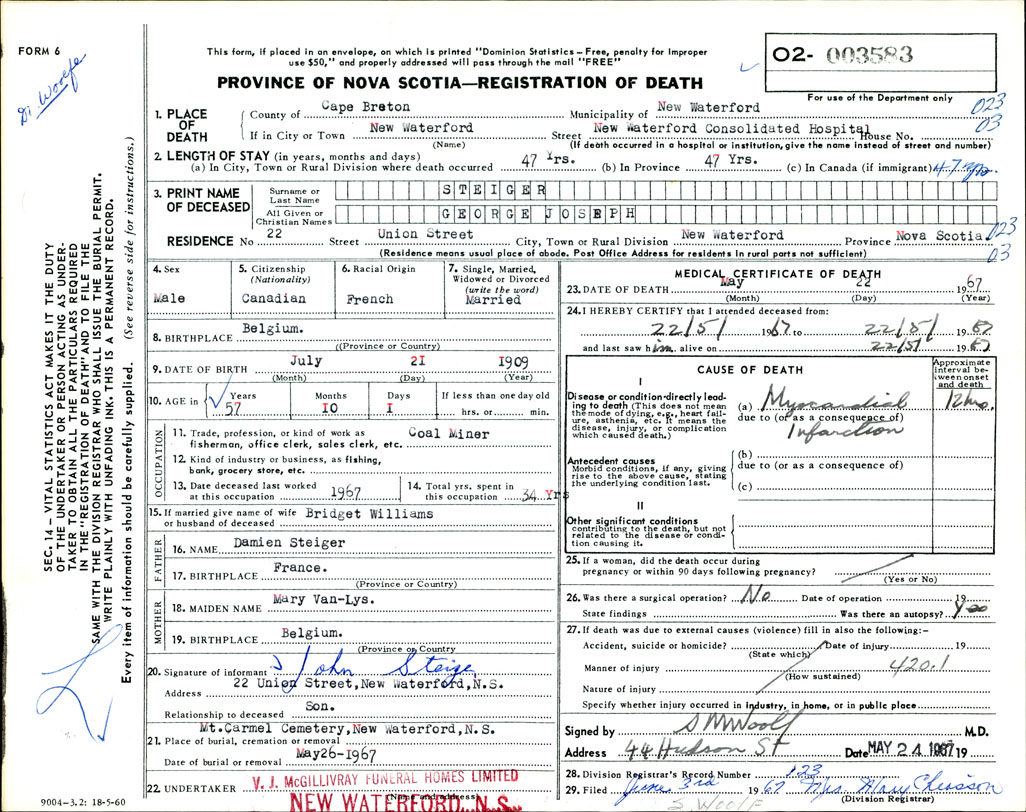 FORM 6
Dr. Woolfe
This form, if placed in an envelope, on which is printed "Dominion Statistics – Free, penalty for improper
use $50," and properly addressed will pass through the mail "FREE"
PROVINCE OF NOVA SCOTIA—REGISTRATION OF DEATH
02- 003583
For use of the Department only
023
03
1. PLACE OF DEATH
County of Cape Breton Municipality of New Waterford
If in City or Town New Waterford Street New Waterford Consolidated Hospital House No.
(Name) (If death occurred in a hospital or institution, give the name instead of street and number)
2. LENGTH OF STAY (in years, months and days)
(a) In City, Town or Rural Division where death occurred 47 Yrs. (b) In Province 47 Yrs. (c) In Canada (if immigrant) 47 yrs
3. PRINT NAME OF DECEASED
Surname or Last Name STEIGER
All Given or Christian Names GEORGE JOSEPH
RESIDENCE No 22 Street Union Street City, Town or Rural Division New Waterford Province Nova Scotia. 023
(Residence means usual place of abode. Post Office Address for residents in rural parts not sufficient) 03
4. Sex
Male
5. Citizenship (Nationality)
Canadian
6. Racial Origin
French
7. Single, Married, Widowed or Divorced (write the word)
Married
8. BIRTHPLACE Belgium.
((Province or Country)
9. DATE OF BIRTH July 2I I909
(Month) (Day) (Year)
10. AGE in Years Months Days If less than one day old
57 IO I hrs. or min.
OCCUPATION
11. Trade, profession, or kind of work as Coal Miner
fisherman, office clerk, sales clerk, etc.
12. Kind of industry or business, as fishing,
bank, grocery store, etc.
13. Date deceased last worked at this occupation 1967
14. Total yrs. spent in this occupation 34 Yrs
15. If married give name of wife Bridget Williams
or husband of deceased
FATHER
16. NAME Damien Steiger
17. BIRTHPLACE France.
(Province or Country)
MOTHER
18. MAIDEN NAME Mary Van-Lys.
19. BIRTHPLACE Belgium.
(Province or Country
20. Signature of informant John Steige
Address 22 Union Street, New Waterford, N.S.
Relationship to deceased Son.
Mt. Carmel Cemetery, New Waterford, N.S.
21. Place of burial, cremation or removal
Date of burial or removal May26-1967
22. UNDERTAKER V. J. McGILLIVRAY FUNERAL HOMES LIMITED
(Name and address)
NEW WATERFORD, N.S.
9004-3.2: 18-5-60
MEDICAL CERTIFICATE OF DEATH
23. DATE OF DEATH May 22 1967
(Month) (Day) (Year)
24. I HEREBY CERTIFY that I attended deceased from:
22/5/ 1967 to 22/5/ 1967
and last saw him alive on 22/5/ 1967
CAUSE OF DEATH
Approximate interval between onset and death
I
Disease or condition directly leading to death (This does not mean the mode of dying, e.g., heart failure, asthenia, etc. It means the disease, injury, or complication which caused death.)
(a) Myocardial 12 hrs.
due to (or as a consequence of)
Infarction
Antecedent causes
Morbid conditions, if any, giving rise to the above cause, stating the underlying condition last.
(b)
due to (or as a consequence of)
(c)
II
Other significant conditions
contributing to the death, but not related to the disease or condition causing it.
25. If a woman, did the death occur during
pregnancy or within 90 days following pregnancy?
(Yes or No)
26. Was there a surgical operation? No Date of operation 19
State findings Was there an autopsy? Yes
27. If death was due to external causes (violence) fill in also the following:–
Accident, suicide or homicide? Date of injury 19
(State which)
Manner of injury 420.1
(How sustained)
Nature of injury
Specify whether injury occurred in industry, in home, or in public place
Signed by S M Woolf M.D.
Address 44 Hudson St Date MAY 24 1967 19
28. Division Registrar's Record Number 123
29. Filed June 3rd 1967 Mrs. Mary Chiasson
(Division Registrar)
S. WOOLF
SEC. 14 – VITAL STATISTICS ACT MAKES IT THE DUTY
OF THE UNDERTAKER OR PERSON ACTING AS UNDER-
TAKER TO OBTAIN THE PARTICULARS REQUIRED
IN THE "REGISTRATION OF DEATH" AND TO FILE THE
SAME WITH THE DIVISION REGISTRAR WHO SHALL ISSUE THE BURIAL PERMIT.
WRITE PLAINLY WITH UNFADING INK. THIS IS A PERMANENT RECORD.
Every item of information should be carefully supplied. (See reverse side for instructions.)